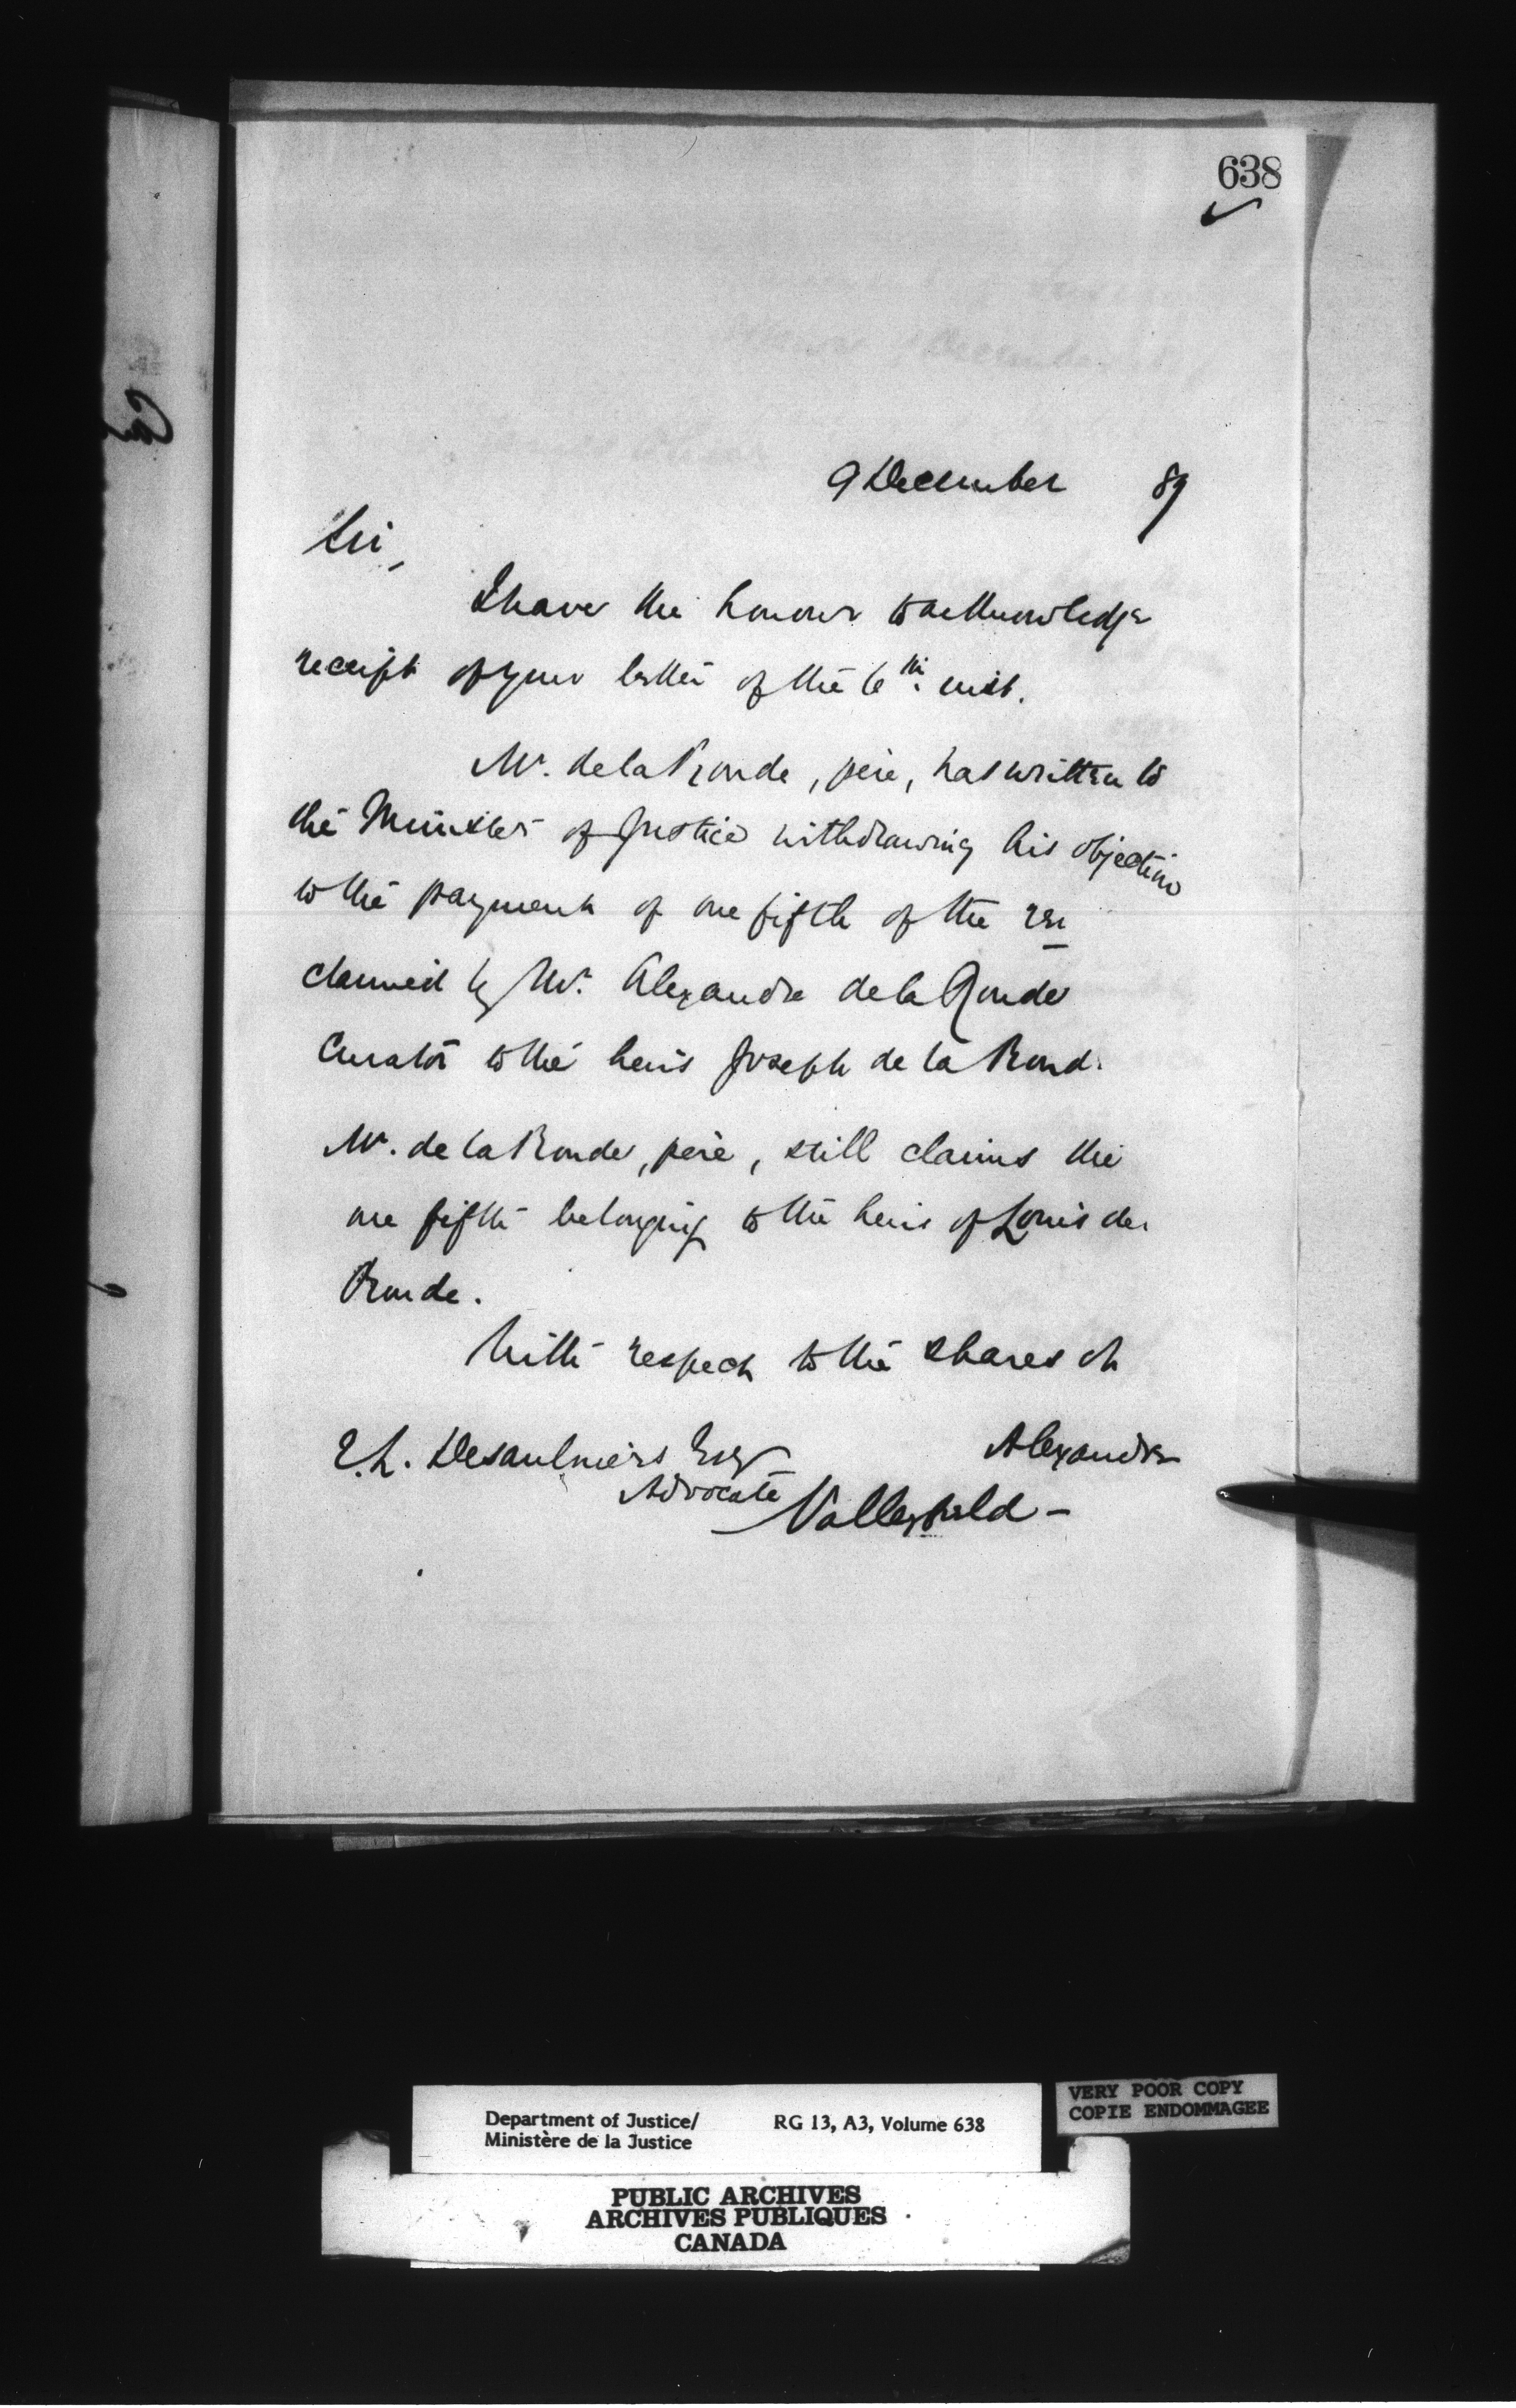 638
9 December 89
Sir,
I have the honour to acknowledge
receipt of your letter of the 6th inst.
Mr. de la Ronde, père, has written to
the Minister of Justice withdrawing his objection
to the payment of one fifth of the
claimed by Mr. Alexandre de la Ronde
Curator to the heirs Joseph de la Rond
Mr. de la Ronde, père, still claims the
one fifth belonging to the heirs of Louis de
Ronde.
With respect to the shares
E. L. Desaulniers Esq
Alexandre
Advocate
Valleyfield -
VERY POOR COPY
COPIE ENDOMMAGEE
Department of Justice/ RG 13, A3, Volume 638
Ministère de la Justice
PUBLIC ARCHIVES
ARCHIVES PUBLIQUES
CANADA